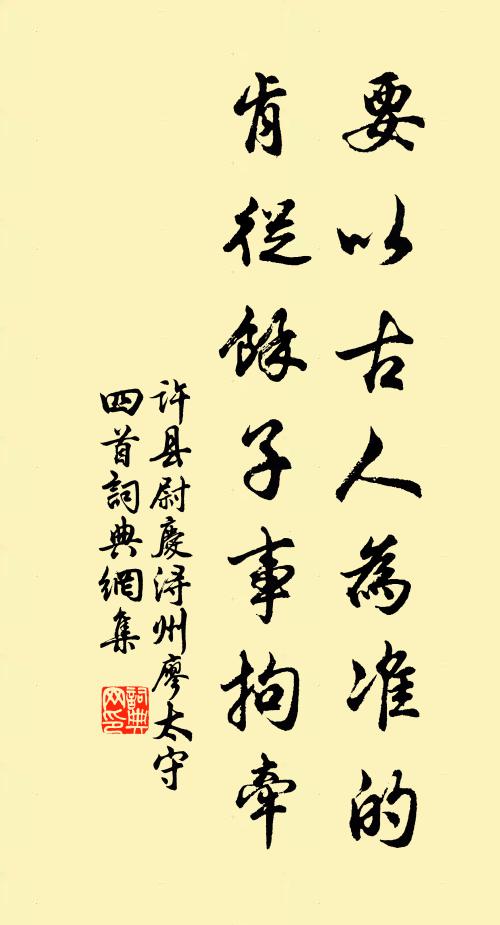 要以古人為准的
肯從餘子事拘牽
许县尉慶浔州廖太守
四首詞典網集
詞典网印